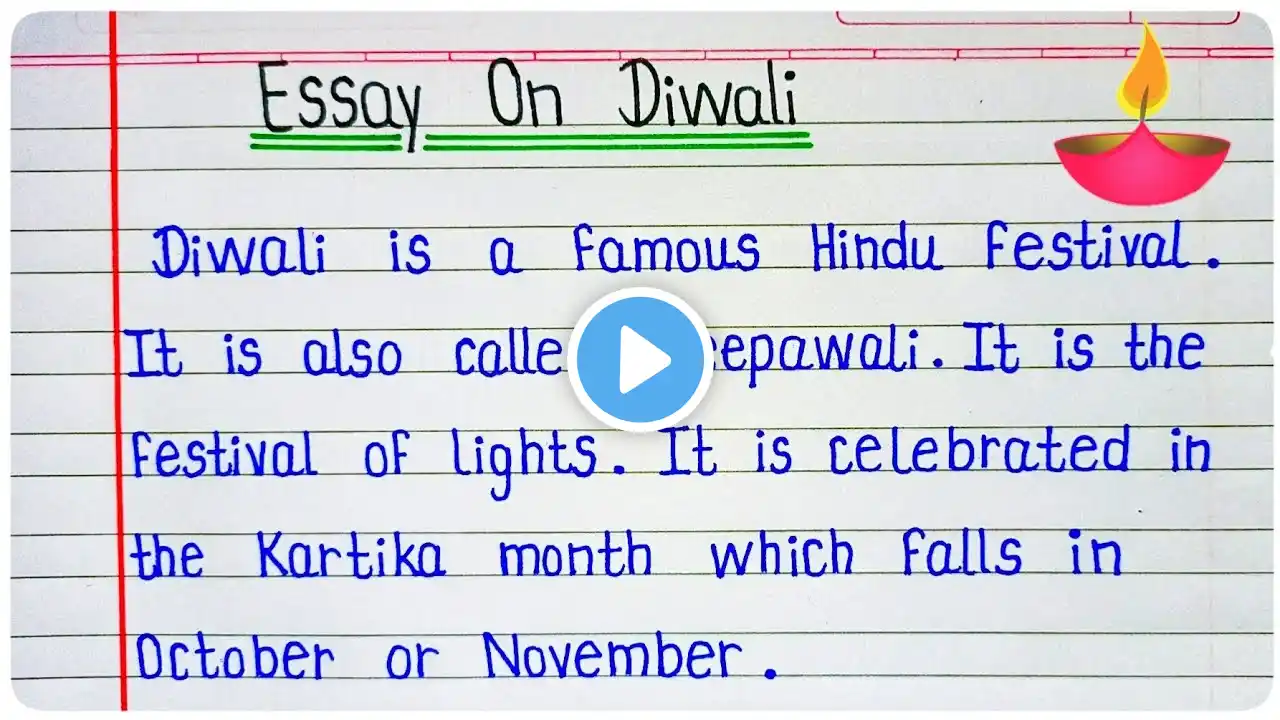 Essay On Diwali
Diwali is a famous Hindu festival.
It is also calle epawali. It is the
festival of lights. It is celebrated in
the Kartika month which falls in
October or November.